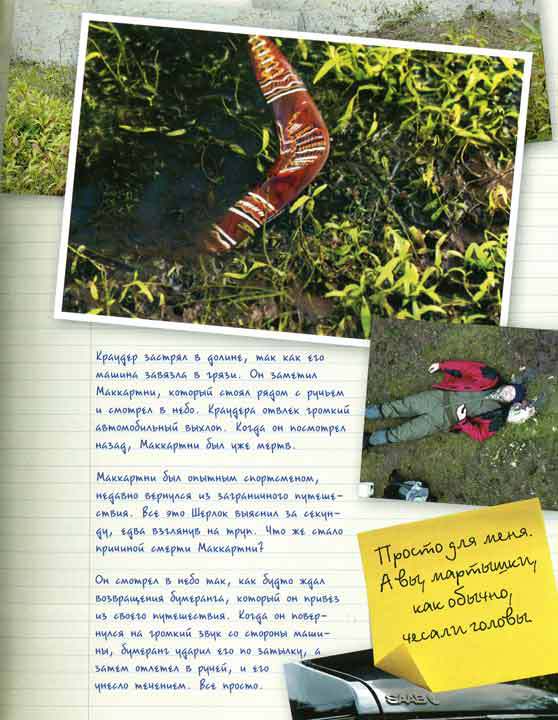 Краудер застрял в долине, так как его
машина завязла в грязи. Он заметил
Маккартни, который стоял рядом с ручьем
и смотрел в небо. Краудера отвлек громкий
автомобильный выхлоп. Когда он посмотрел
назад, Маккартни был уже мертв.
Маккартни был опытным спортсменом,
недавно вернулся из заграничного путеше-
ствия. Все это Шерлок выяснил за секун-
ду, едва взглянув на труп. Что же стало
причиной смерти Маккартни?
Он смотрел в небо так, как будто ждал
возвращения бумеранга, который он привез
из своего путешествия. Когда он повер-
нулся на громкий звук со стороны маши-
ны, бумеранг ударил его по затылку, а
затем отлетел в ручей, и его
унесло течением. Все просто.
Просто для меня.
А вы, мартышки,
как обычно,
чесали головы
SAAB